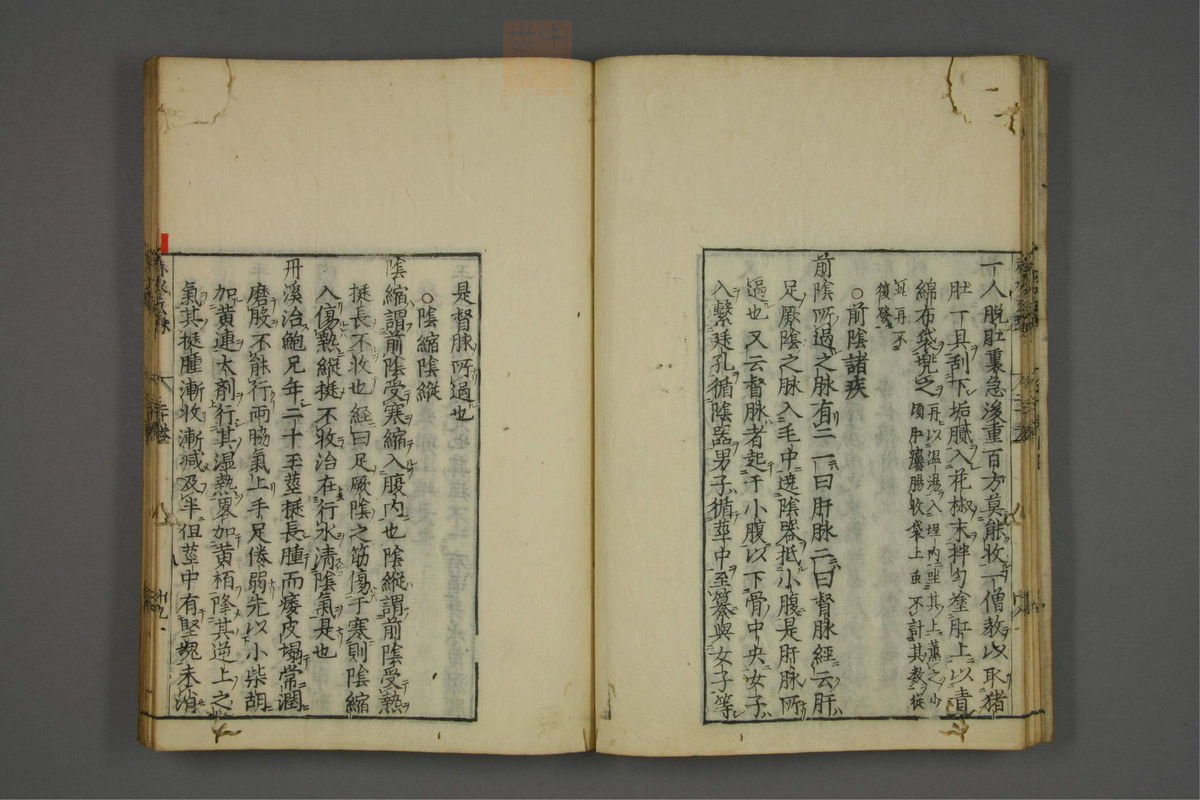 一人脱肛裏急後重百方莫能收一僧教以取猪
肚一具刮下垢膩入花椒末拌勻塗肛上以青
綿布袋兜之再以温湯入埕内坐其上薫之少
頃肛癢腸收袋上虫不計其数從
此再不
復發
○前陰諸疾
前陰所過之脉有二一曰肝脉二曰督脉經云肝
足厥陰之脉入毛中遶陰器抵小腹是肝脉所
過也又云督脉者起于小腹以下骨中央女子
入繫廷孔循陰器男子循莖中至纂與女子等
是督脉所過也
○陰縮陰縱
陰縮謂前陰受寒縮入腹内也陰縱謂前陰受熱
挺長不收也經曰足厥陰之筋傷于寒則陰縮
入傷熱縱挺不收治在行水清陰氣是也
丹溪治鮑兄年二十玉莖挺長腫而痿皮塌常潤
磨股不能行両脇氣上手足倦弱先以小柴胡
加黄連大劑行其湿熱畧加黄栢降其逆上之
氣其挺腫漸收漸减及半但莖中有堅塊未消